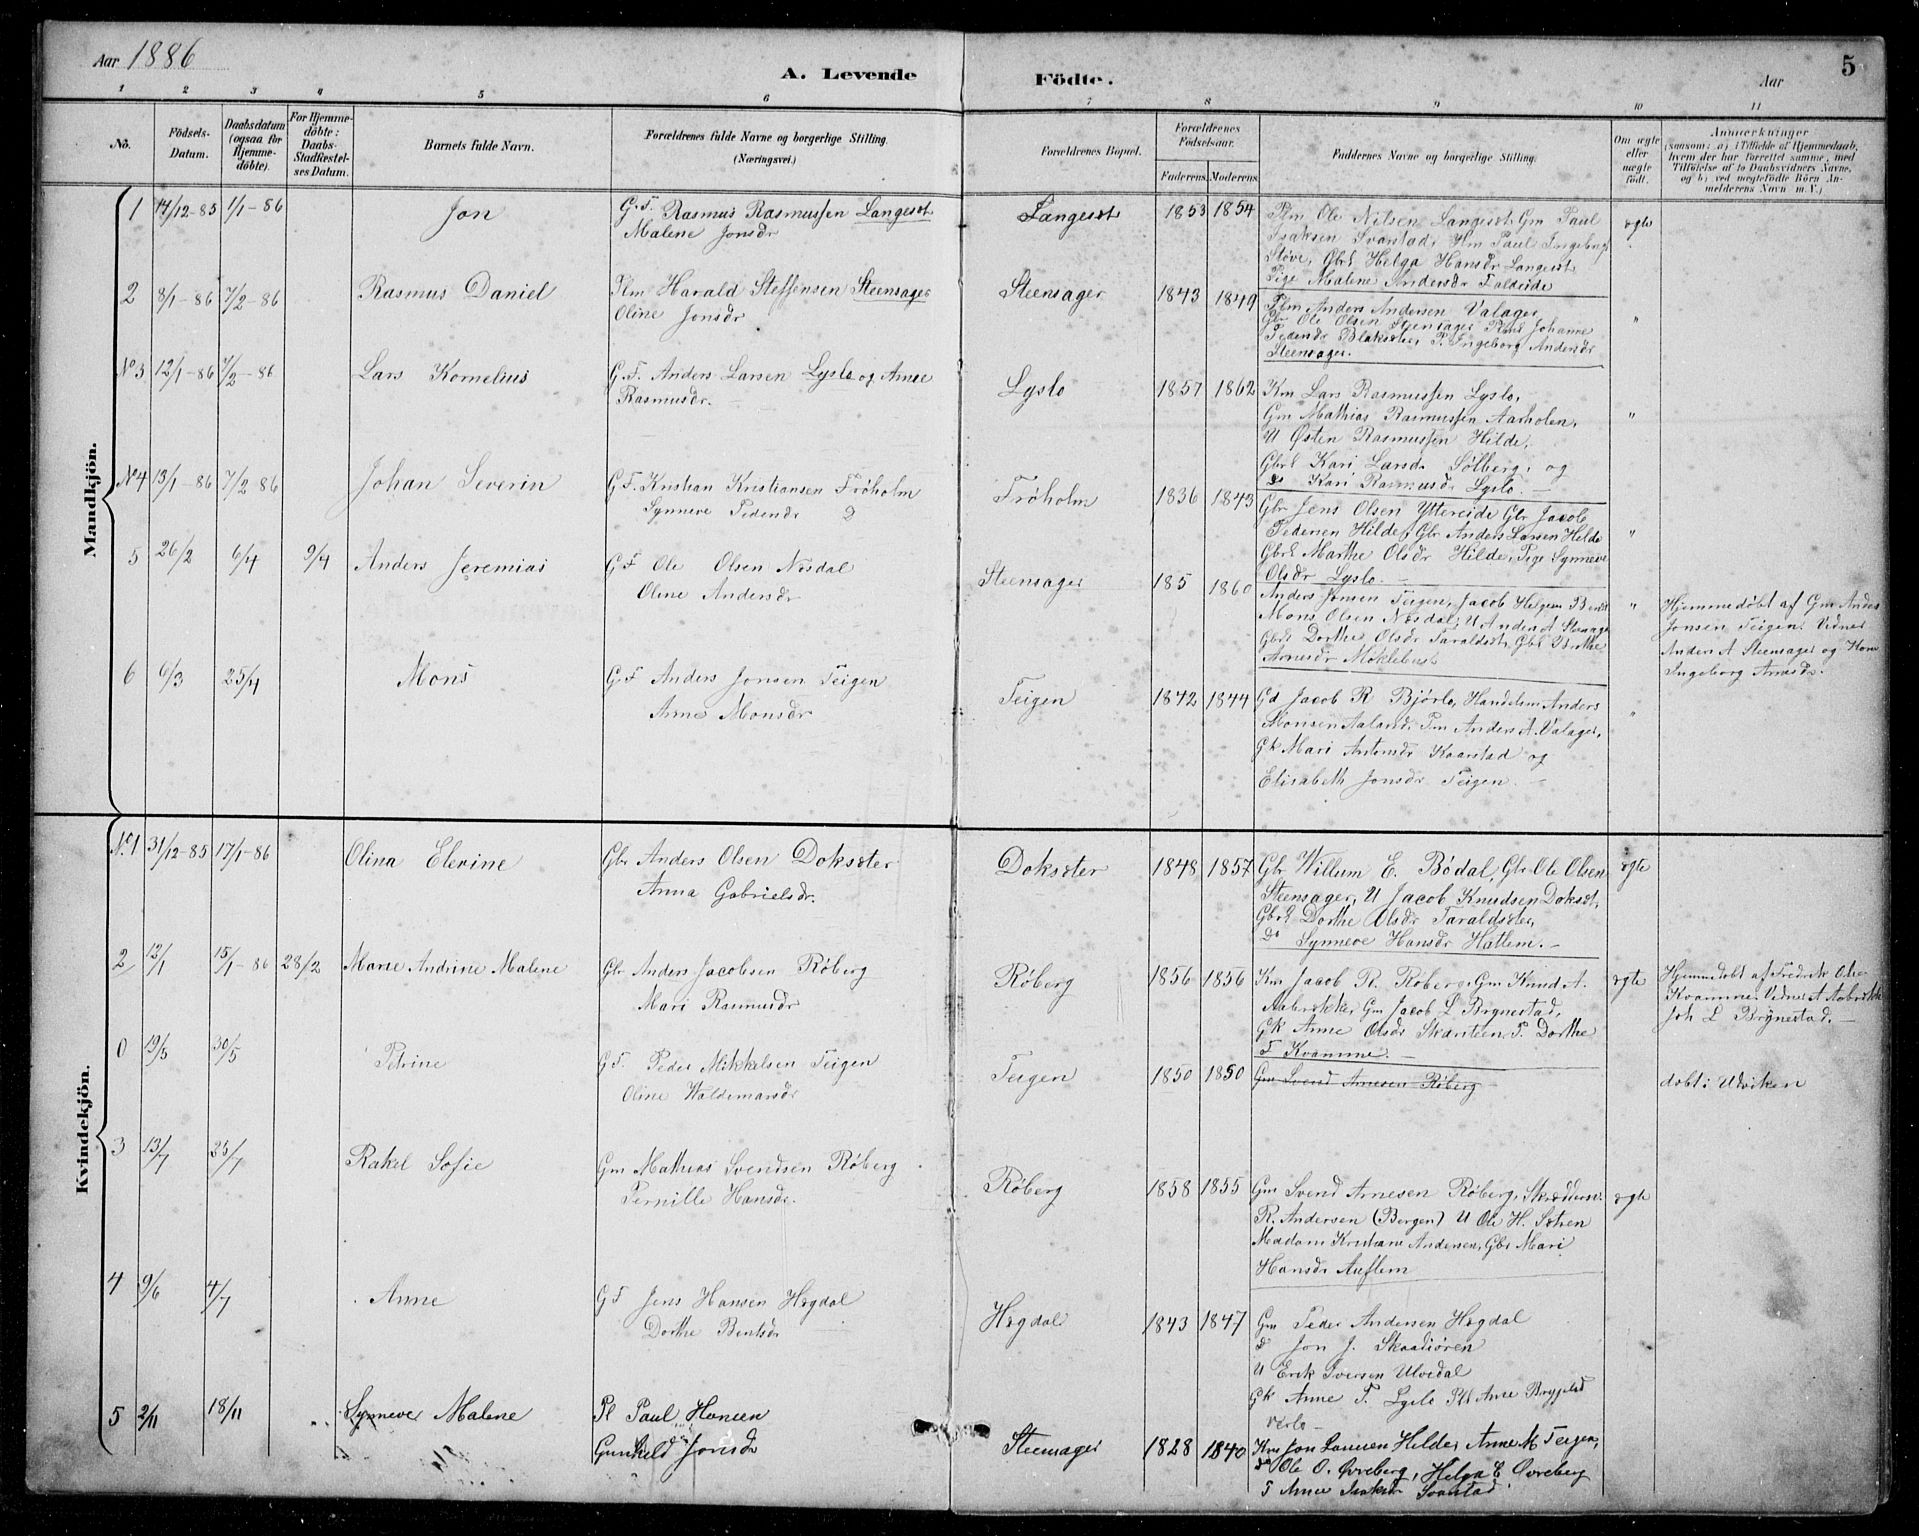 Aar 1886
A. Levende Födte.
Aar
5
1 2 3 4 5 6 7 8 9 10 11
No.
Födsels-Datum.
Daabsdatum (ogsaa for Hjemme-döbte).
For Hjemme-döbte: Daabs-Stadfæstel-ses Datum.
Barnets fulde Navn.
Forældrenes fulde Navne og borgerlige Stilling. (Næringsvei.)
Forældrenes Bopæl.
Forældrenes Födselsaar.
Faderens. Moderens.
Faddernes Navne og borgerlige Stilling.
Om ægte eller uægte födt.
Anmærkninger
(saasom: a) i Tilfælde af Hjemmedaab, hvem der har forrettet samme, med Tilföielse af to Daabsvidners Navne, og b) ved uægtefödte Börn An-melderens Navn m. V.)
Mandkjön.
1 14/12-85 1/1-86 Jon G.F. Rasmus Rasmussen Langesæt
Malene Jonsdr
Langesæt 1853 1854 Plm Ole Nilsen Langesæt Gm Paul
Isaksen Svarstad, Hm Paul Ingebrigt
Støve, Gbrk Helga Hansdr Langesæt
Pige Malene Andersdr Faldeide
ægte
2 8/1-86 7/2-86 Rasmus Daniel Plm Harald Steffensen Steensager
Oline Jonsdr
Steensager 1843 1849 Plm Anders Andersen Valager
Gbr Ole Olsen Steensager Plk Johanne
Pedersdr Blaksæter P. Ingeborg Andersdr
Steensager.
"
No 3 12/1-86 7/2-86 Lars Kornelius G.F. Anders Larsen Lyslo og Anne
Rasmusdr. —
Lyslo 1857 1862 Km Lars Rasmussen Lyslo,
Gm Mathias Rasmussen Aarholen,
U Østen Rasmussen Hilde,
Gbrk Kari Larsdr Sølberg, og
do Kari Rasmusdr Lyslo. —
"
No 4 13/1-86 7/2 86 Johan Severin G.F. Kristian Kristiansen Frøholm
Synneve Pedersdr
Frøholm 1836 1843 Gbr Jens Olsen Yttereide Gbr Jacob
Pedersen Hilde, Gbr Anders Larsen Hilde
Gbrk Marthe Olsdr Hilde, Pige Synneve
Olsdr Lyslo. —
"
5 26/2 6/4 9/4 Anders Jeremias G F Ole Olsen Nesdal
Oline Andersdr
Steensager 185 1860 Anders Jonsen Teigen, Jacob Helgesen
Mons Olsen Nesdal, U Anders A Steensager
Gbrk Dorthe Olsdr Taraldsæt, Gbk Birthe
Arnesdr Møklebust
"
Hjemmedøbt af Gm Anders
Jonsen Teigen. Vidner
Anders A Steensager og Kone
Ingeborg Arnesdr.
6 6/3 25/4 Mons G.F Anders Jonsen Teigen
Anne Monsdr
Teigen 1842 1844 Gd Jacob R Bjørlo, Handelsm Anders
Monsen Aaland, Pm Anders A Valager,
Gk Mari Antonsdr Kaarstad og
Elisabeth Jonsdr Teigen. —
"
Kvindekjön.
No. 1 31/12-85 17/1-86 Olina Elevine Gbr Anders Olsen Doksæter
Anna Gabrielsdr.
Doksæter 1848 1857 Gbr Willum E. Bødal, Gbr Ole Olsen
Steensager, U Jacob Knudsen Doksæt,
Gbrk Dorthe Olsdr Taraldsæter,
Do Synneve Hansdr Hatlem. —
ægte
2 12/1 15/1-86 28/2 Marie Andrine Malene Gbr Anders Jacobsen Røberg
Mari Rasmusdr
Røberg 1856 1856 Km Jacob R. Røberg. Gm Knud A.
Aabrekke, Gm Jacob L Brynestad,
Gk Anne Olsdr Skarsteen, P. Dorthe
F Kvamme. —
ægte
Hjemmedøbt af Fredrik Ole
Kvamme. Vidner A Aabrekk
Joh L Brynestad. —
0 19/5 30/5 Petrine G F. Peder Mikkelsen Teigen
Oline Waldemarsdr
Teigen 1850 1850 Gm Svend Arnesen Røberg
døbt i Utviken
3 13/7 25/7 Rakel Sofie Gm Mathias Svendsen Røberg
Pernille Hansdr.
Røberg 1858 1855 Gm Svend Arnesen Røberg, Skrædderm.
R. Andersen (Bergen) U Ole H. Sætren
Madam Kristiane Andersen, Gbr Mari
Hansdr Auflem
ægte
4 9/6 4/7 Anne G F Jens Hansen Hægdal
Dorthe Bentsdr
Hægdal 1843 1847 Gm Peder Andersen Hægdal
do Jon J. Skaadiøren
U Erik Iversen Ulvedal
Gk Anne P. Lyslo Plk Anne
Verlo —
5 2/11 18/11 Synneve Malene Pl Paul Hansen
Gunhild Jonsdr
Steensager 1828 1840 Km Jon Larsen Hilde, Anne M Teigen,
do Ole O. Øvreberg, Helga E. Øvreberg
P Anne Isaksdr Svarstad.